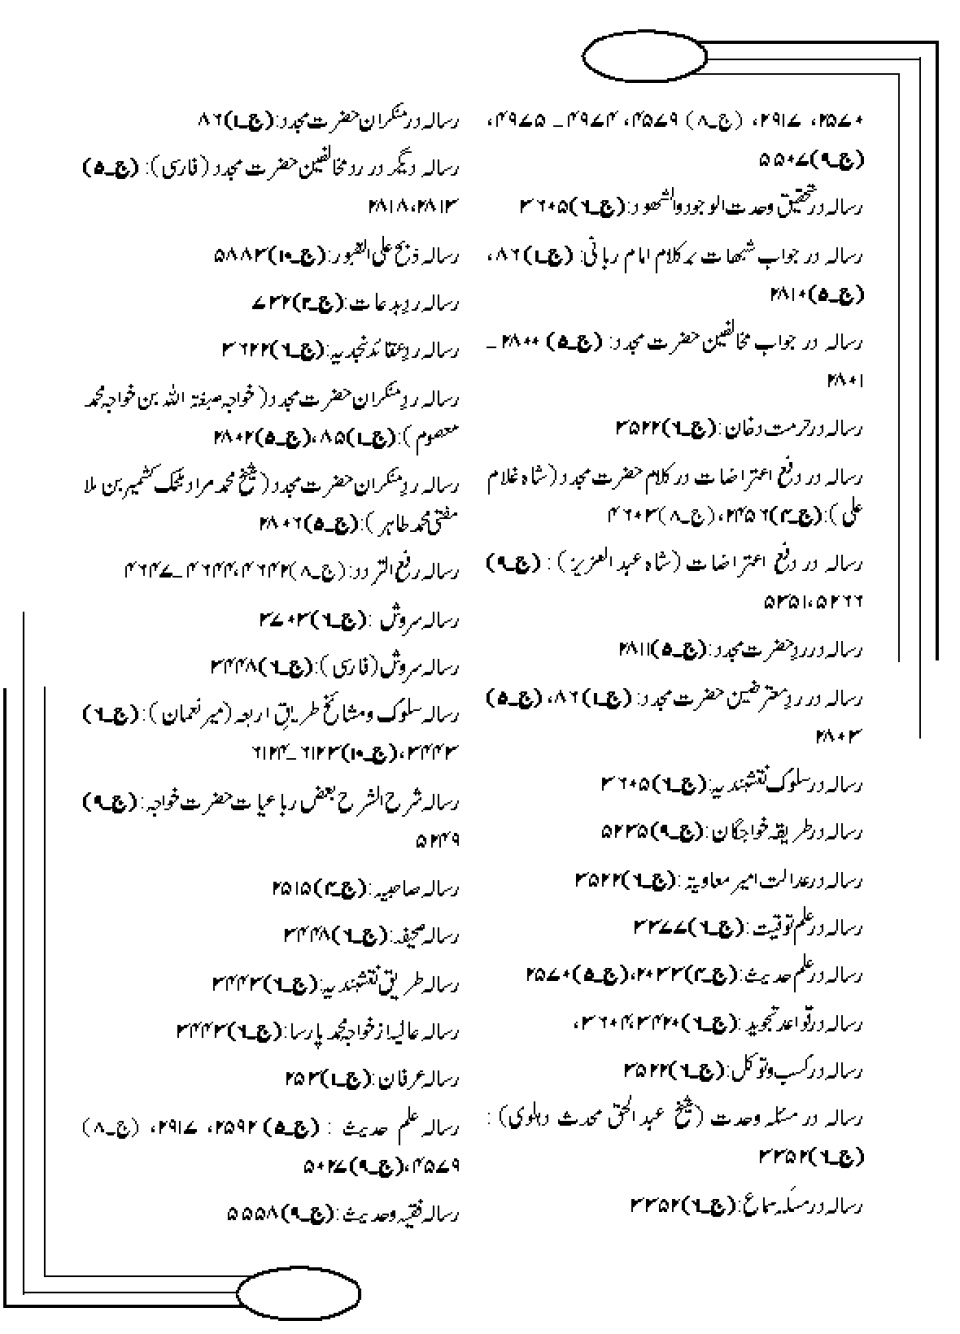 ۲۵۷۰، ۲۹۱۷، (ج۔۸) ۴۵۷۹، ۴۹۷۴ ۔ ۴۹۷۵،
(ج۔۹) ۵۵۰۷
رسالہ در تحقیق وحدت الوجود والشھود: (ج۔٦) ۳٦۰۵
رسالہ در جواب شبھات بر کلام امام ربانی: (ج۔۱) ۸٦،
(ج۔۵) ۲۸۱۰
رسالہ در جواب مخالفین حضرت مجدد: (ج۔۵) ۲۸۰۰ ۔
۲۸۰۱
رسالہ در حرمت دخان: (ج۔٦) ۳۵۲۲
رسالہ در دفع اعتراضات در کلام حضرت مجدد (شاہ غلام
علی): (ج۔۴) ۲۴۵٦، (ج۔۸) ۴٦۰۳
رسالہ در دفع اعتراضات (شاہ عبد العزیز): (ج۔۹)
۵۲٦٦، ۵۳۵۱
رسالہ در ردِ حضرت مجدد: (ج۔۵) ۲۸۱۱
رسالہ در ردِ معترضین حضرت مجدد: (ج۔۱) ۸٦، (ج۔۵)
۲۸۰۳
رسالہ در سلوک نقشبندیہ: (ج۔٦) ۳٦۰۵
رسالہ در طریقہ خواجگان: (ج۔۹) ۵۲۳۵
رسالہ در عدالت امیر معاویہ: (ج۔٦) ۳۵۲۲
رسالہ در علم توقیت: (ج۔٦) ۳۳۷۷
رسالہ در علم حدیث: (ج۔۴) ۲۰۳۳، (ج۔۵) ۲۵۷۰
رسالہ در قواعد تجوید: (ج۔٦) ۳۴۲۰، ۳٦۰۴،
رسالہ در کسب و توکل: (ج۔٦) ۳۵۲۲
رسالہ در مسئلہ وحدت (شیخ عبد الحق محدث دہلوی):
(ج۔٦) ۳۳۵۲
رسالہ در مسئلہ سماع: (ج۔٦) ۳۳۵۲
رسالہ در منکران حضرت مجدد: (ج۔۱) ۸٦
رسالہ دیگر در رد مخالفین حضرت مجدد (فارسی): (ج۔۵)
۲۸۱۳، ۲۸۱۸
رسالہ ذبح علی القبور: (ج۔۱۰) ۵۸۸۳
رسالہ ردِ بدعات: (ج۔۲) ۷۳۲
رسالہ ردِ عقائد نجدیہ: (ج۔٦) ۳٦۲۲
رسالہ ردِ منکران حضرت مجدد (خواجہ صبغۃ اللہ بن خواجہ محمد
معصوم): (ج۔۱) ۸۵، (ج۔۵) ۲۸۰۲
رسالہ ردِ منکران حضرت مجدد (شیخ محمد مراد ٹنگ کشمیر بن ملا
مفتی محمد طاہر): (ج۔۵) ۲۸۰٦
رسالہ رفع التردد: (ج۔۸) ۴٦۴۲، ۴٦۴۴ ۔ ۴٦۴۷
رسالہ سروش: (ج۔٦) ۳۷۰۳
رسالہ سروش (فارسی): (ج۔٦) ۳۴۴۸
رسالہ سلوک و مشائخ طریقِ اربعہ (میر نعمان): (ج۔٦)
۳۴۴۳، (ج۔۱۰) ٦۱۲۳ ۔ ٦۱۲۴
رسالہ شرح الشرح بعض رباعیات حضرت خواجہ: (ج۔۹)
۵۲۴۹
رسالہ صاحبیہ: (ج۔۴) ۲۵۱۵
رسالہ صحیفہ: (ج۔٦) ۳۴۴۸
رسالہ طریق نقشبندیہ: (ج۔٦) ۳۴۴۳
رسالہ عالیہ از خواجہ محمد پارسا: (ج۔٦) ۳۴۴۳
رسالہ عرفان: (ج۔۱) ۲۵۳
رسالہ علم حدیث: (ج۔۵) ۲۵۹۲، ۲۹۱۷، (ج۔۸)
۴۵۷۹، (ج۔۹) ۵۰۲۷
رسالہ فقیہ وحدیث: (ج۔۹) ۵۵۵۸